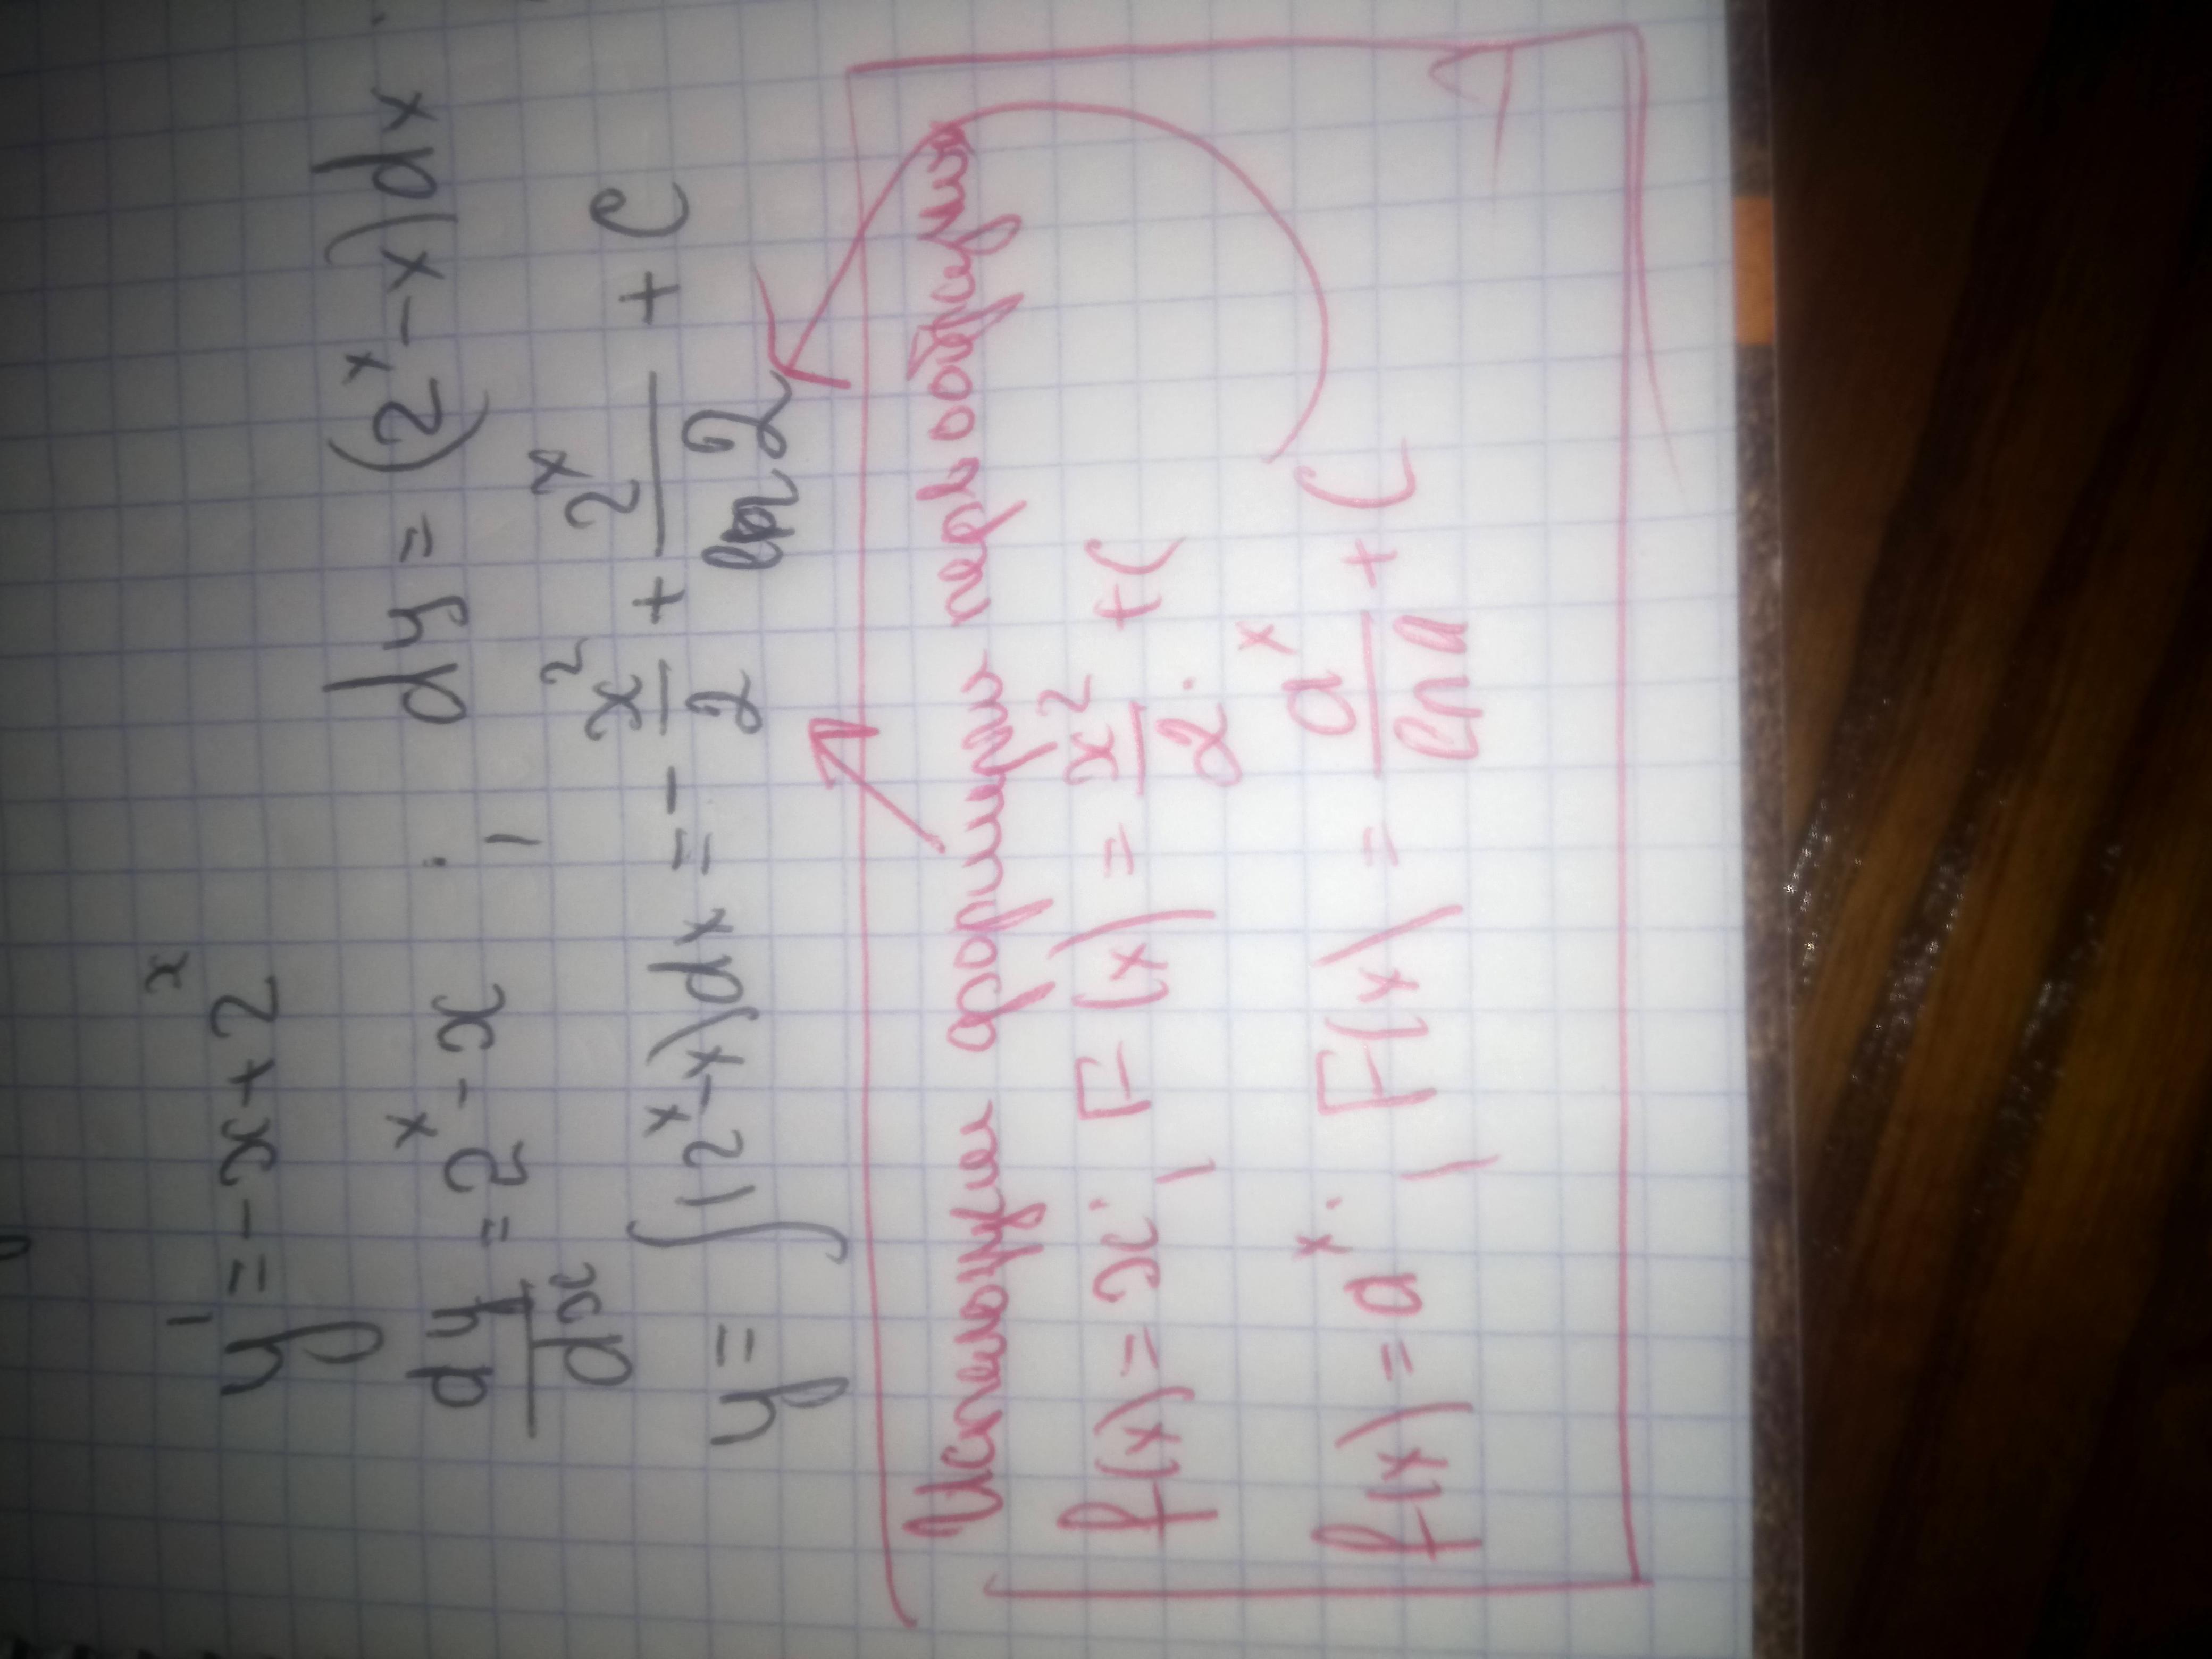 y' = -x+2^x
dy/dx = 2^x - x, dy = (2^x - x)dx
y = ∫(2^x - x)dx = - x^2/2 + 2^x/ln2 + C
Использую формулы первообразных
f(x) = x; F(x) = x^2/2 + C
f(x) = a^x; F(x) = a^x/ln a + C